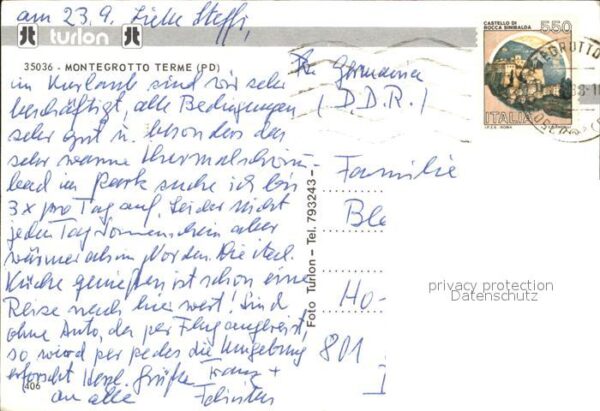 am 23.9. Liebe Steffi,
turlon
35036 - MONTEGROTTO TERME (PD)
im Kurlaub sind wir sehr
beschäftigt, alle Bedingungen
sehr gut u. besonders das
sehr warme Thermalschwimm-
bad im Park suche ich bis
3x pro Tag auf. Leider nicht
jeden Tag Sonnenschein aber
wärmer als im Norden. Die ital.
Küche genießen ist schon eine
Reise nach hier wert! Sind
ohne Auto, da per Flug angereist,
so wird per pedes die Umgebung
erforscht. Herzl. Grüße Franz +
an alle
406
Foto Turlon - Tel. 793243 -
Germania
(D.D.R.)
Familie
Ble
Ho-
801
CASTELLO DI
ROCCA SINIBALDA
550
ITALIA
I.P.Z.S. ROMA
privacy protection
Datenschutz